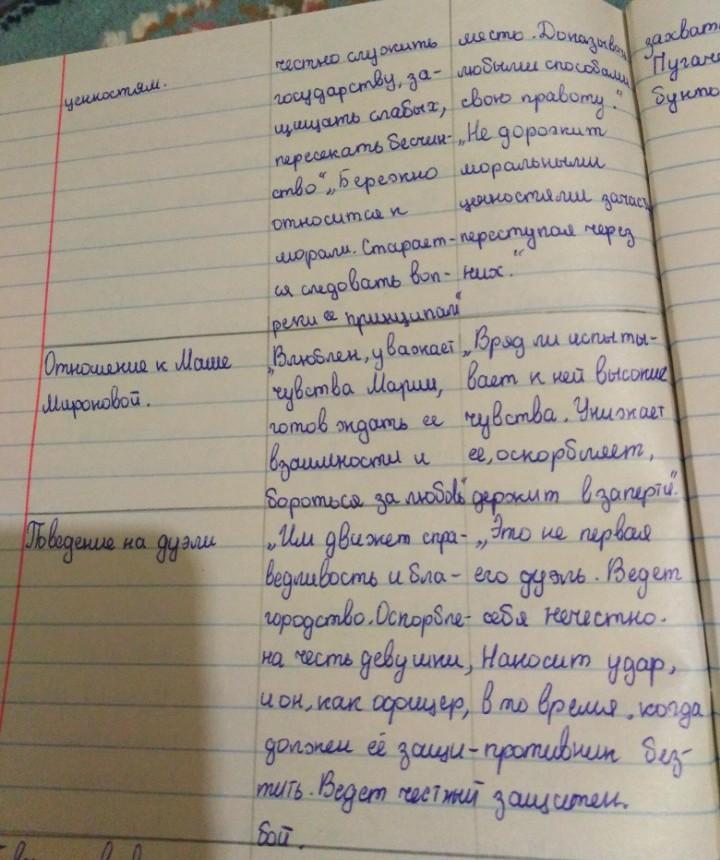 ценностям.
честно служить
государству, за-
щищать слабых,
пересекать бесчин-
ство" „Бережно
относится к
морали. Старает-
ся следовать воп-
реки ее принципам"
место. Доказывая
любыми способами
свою правоту."
„Не дорожит
моральными
ценностями зачаст
переступая через
них."
захват
Пугач
бунто
Отношение к Маше
Мироновой.
„Влюблен, уважает
чувства Марии,
готов ждать ее
взаимности и
бороться за любовь"
„Вряд ли испыты-
вает к ней высокие
чувства. Унижает
ее, оскорбляет,
держит взаперти".
Поведение на дуэли
„Им движет спра-
ведливость и бла-
городство. Оскорбле-
на честь девушки,
и он, как офицер,
должен её защи-
тить. Ведет честный
бой.
„Это не первая
его дуэль. Ведет
себя нечестно.
Наносит удар,
в то время, когда
противник без-
защитен.